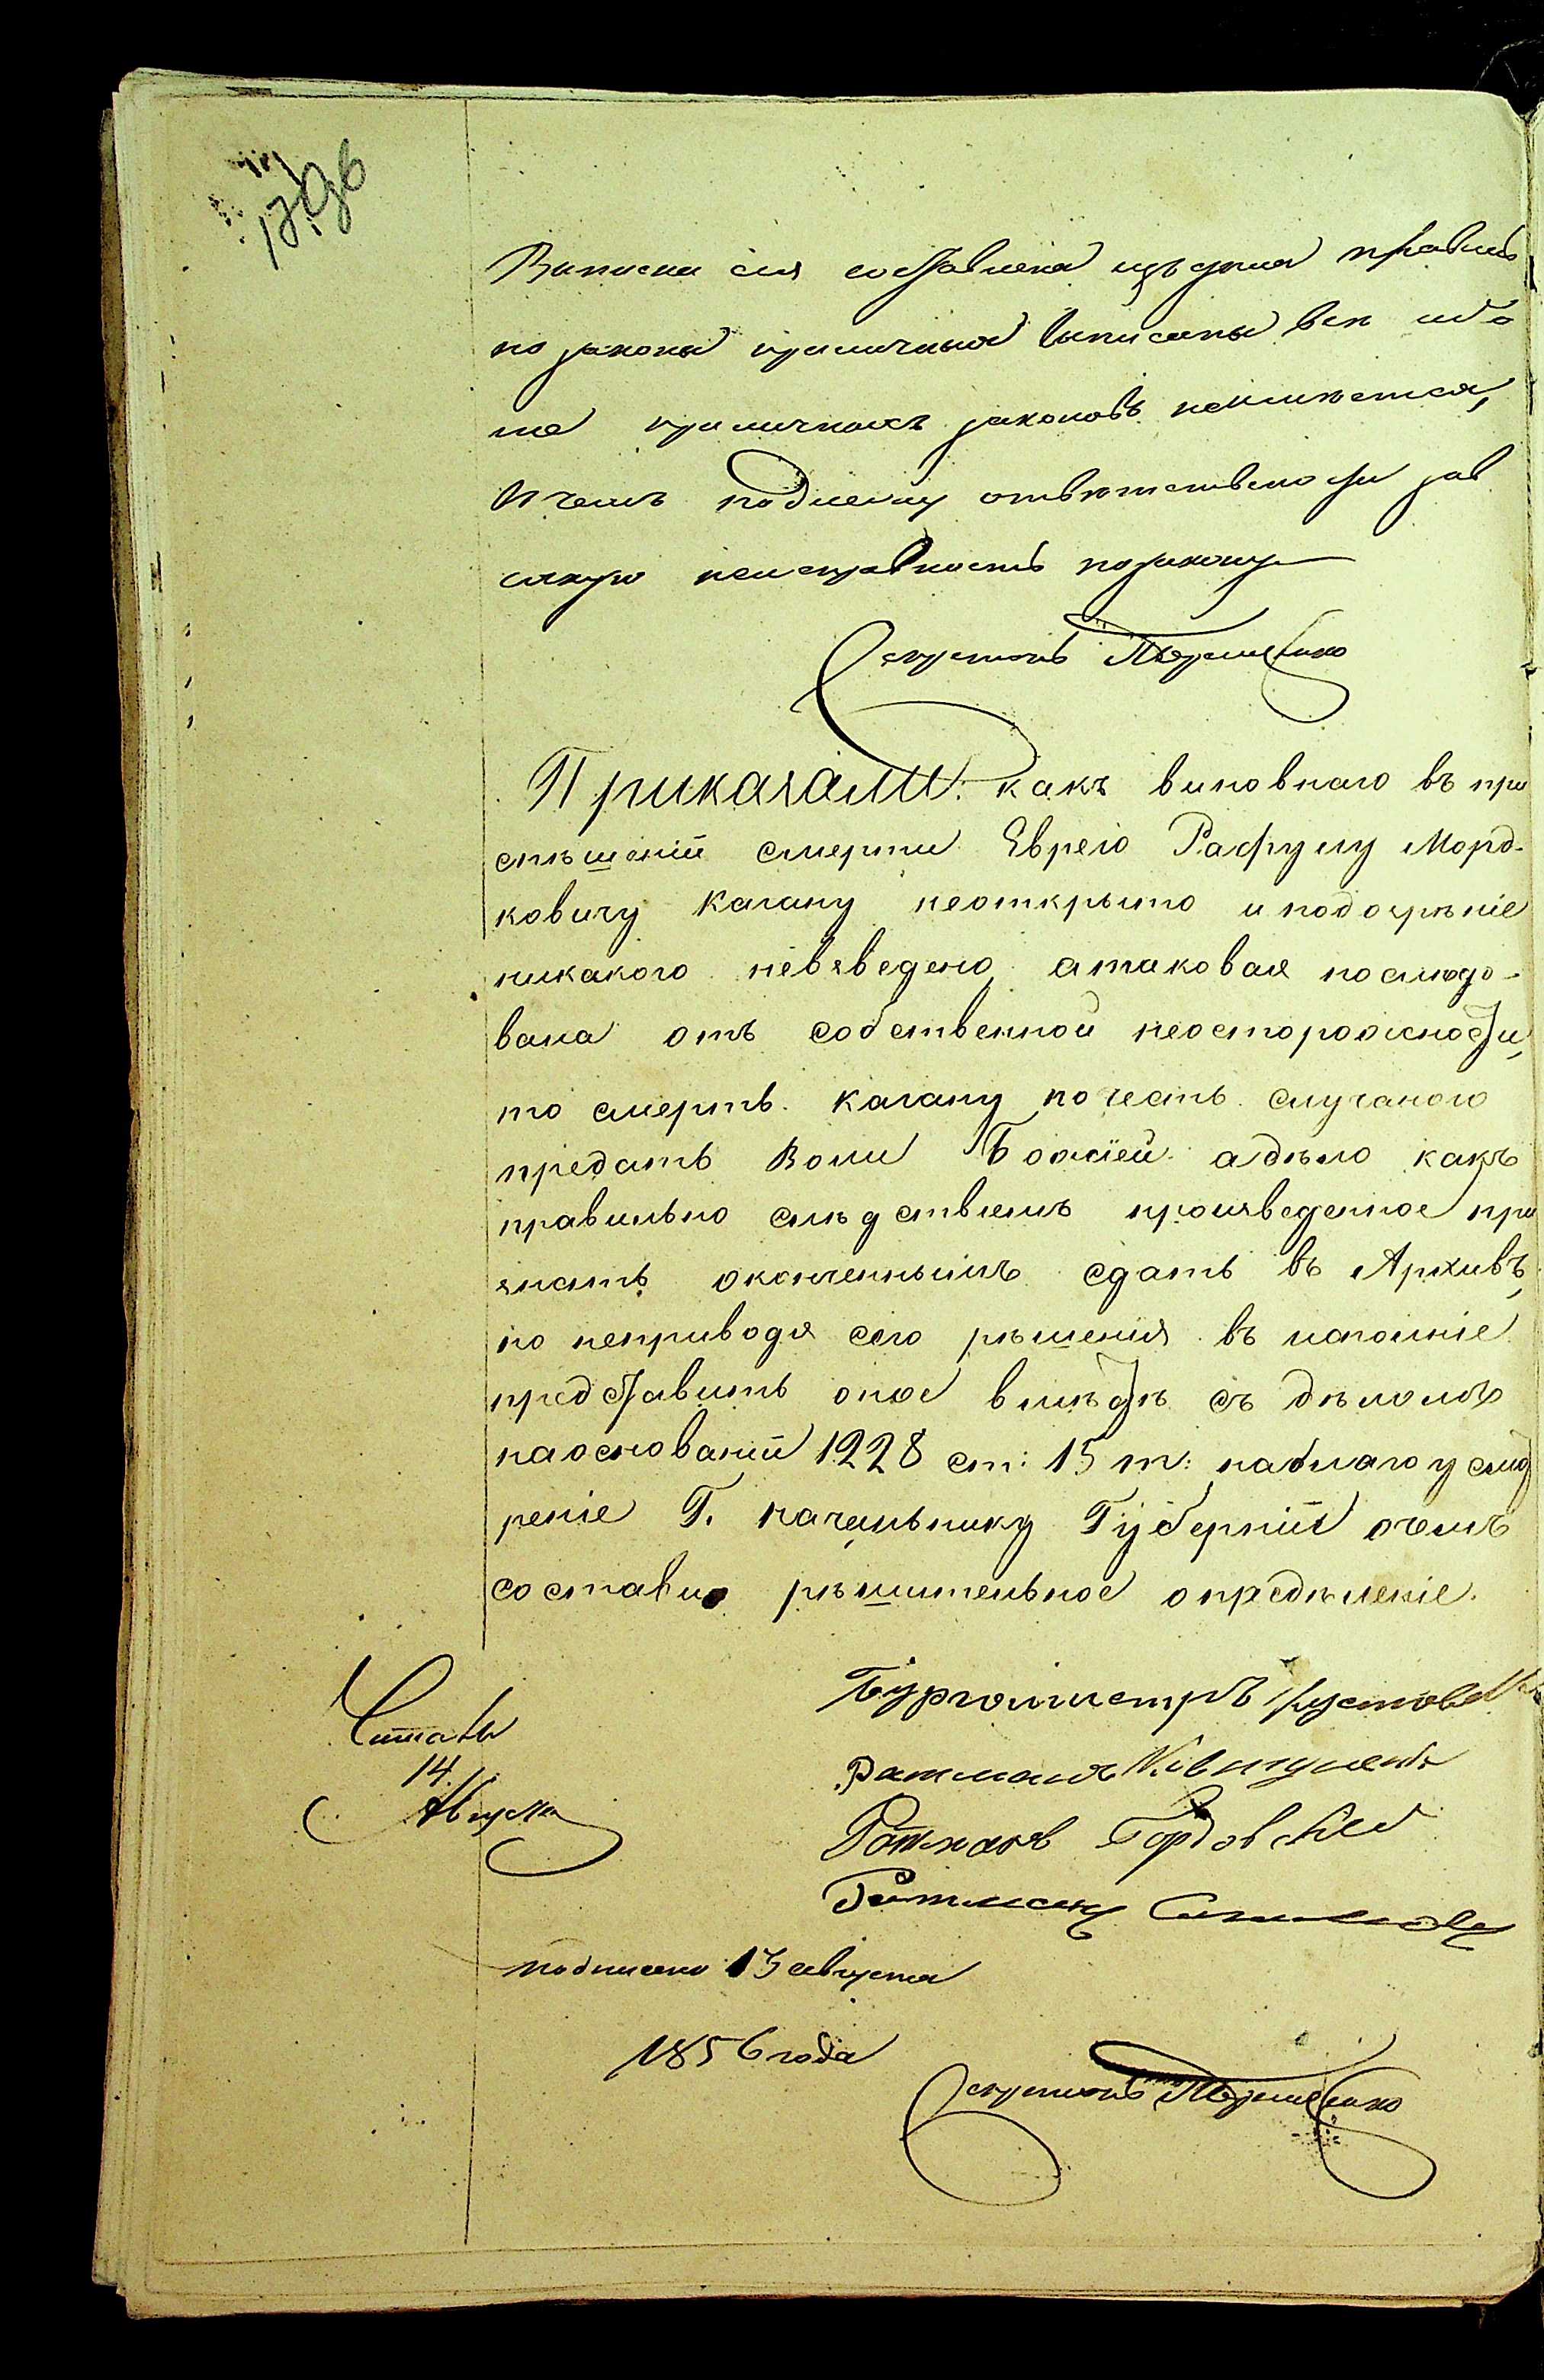 Выписка сія составлена изъ дѣла правиль
но законы приличныя выписаны всѣ ибо
приличныхъ законовъ неимѣется,
подлежу отвѣтственности за в
сякую неисправность по закону
Секретарь
Приказали: какъ виновнаго въ при
спѣшеніи смерти Еврею Рафулу Морд-
ковичу Кагану неоткрыто и подозрѣніе
никакого невзведено, атаковая послѣдо-
вала отъ собственной неосторожности,
то смерть Кагану почесть случаного
предать Воли Божіей а дѣло какъ
правильно слѣдствіемъ произведенное при
знать оконченнымъ сдать въ Архивъ,
но неприводя сего рѣшенія въ исполніе
представить оное вмѣстѣ съ дѣломъ
на основаніи 1228 ст: 15 т: на благоусмо
реніе Г. Начальнику Губерніи очемъ
составил рѣшительное опредѣленіе.
Бургомистръ
Читалъ
14
Августа
Ратманъ
Ратманъ Гордовскій
Ратманъ
подписано 13 августа
1856 года
Секретарь